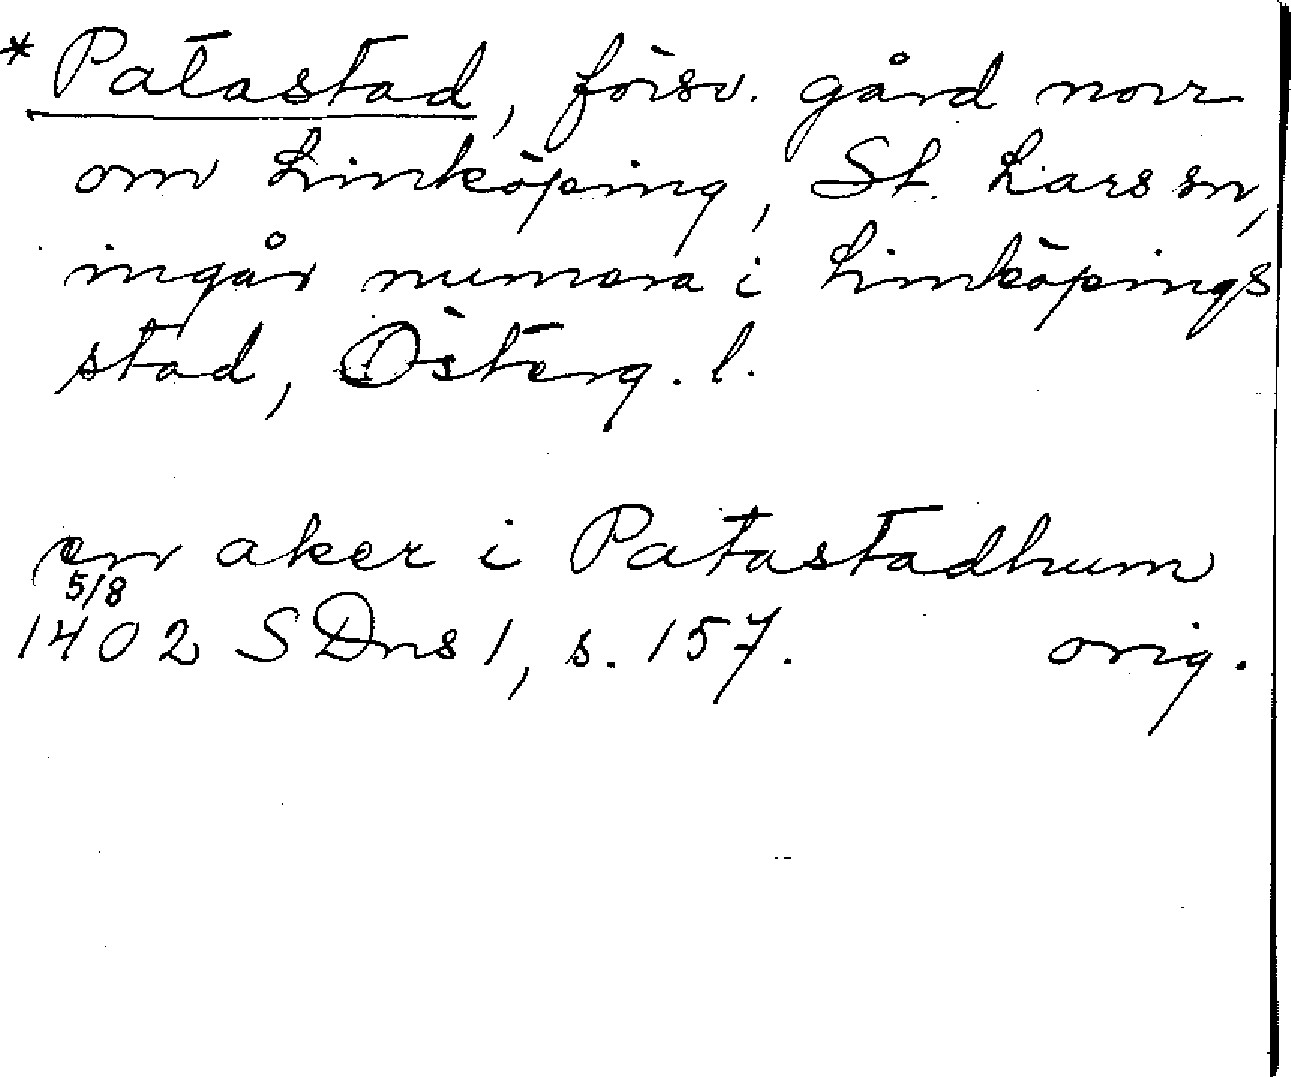 * Patastad, försv. gård norr
om Linköping, St. Lars sn,
ingår numera i Linköpings
stad, Österg. l.
en aker i Patastadhum
5/8
1402 SDns 1, s. 157. orig.